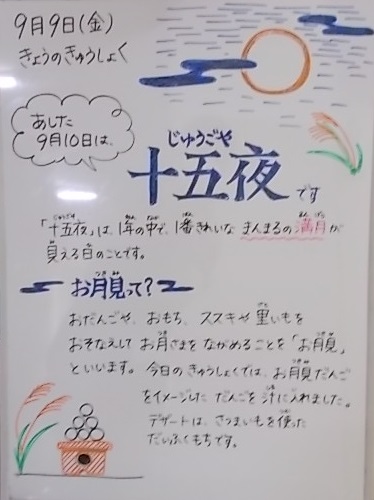 9月9日(金)
きょうのきゅうしょく
あした
9月10日は、
じゅうごや
十五夜です
「十五夜」は、1年の中で、1番きれいな まんまるの満月が
見える日のことです。
お月見って?
おだんごや、おもち、ススキや里いもを
おそなえして お月さまを ながめることを「お月見」
といいます。今日のきゅうしょくでは、お月見だんご
をイメージした だんごを汁に入れました。
デザートは、さつまいもを使った
だいふくもちです。